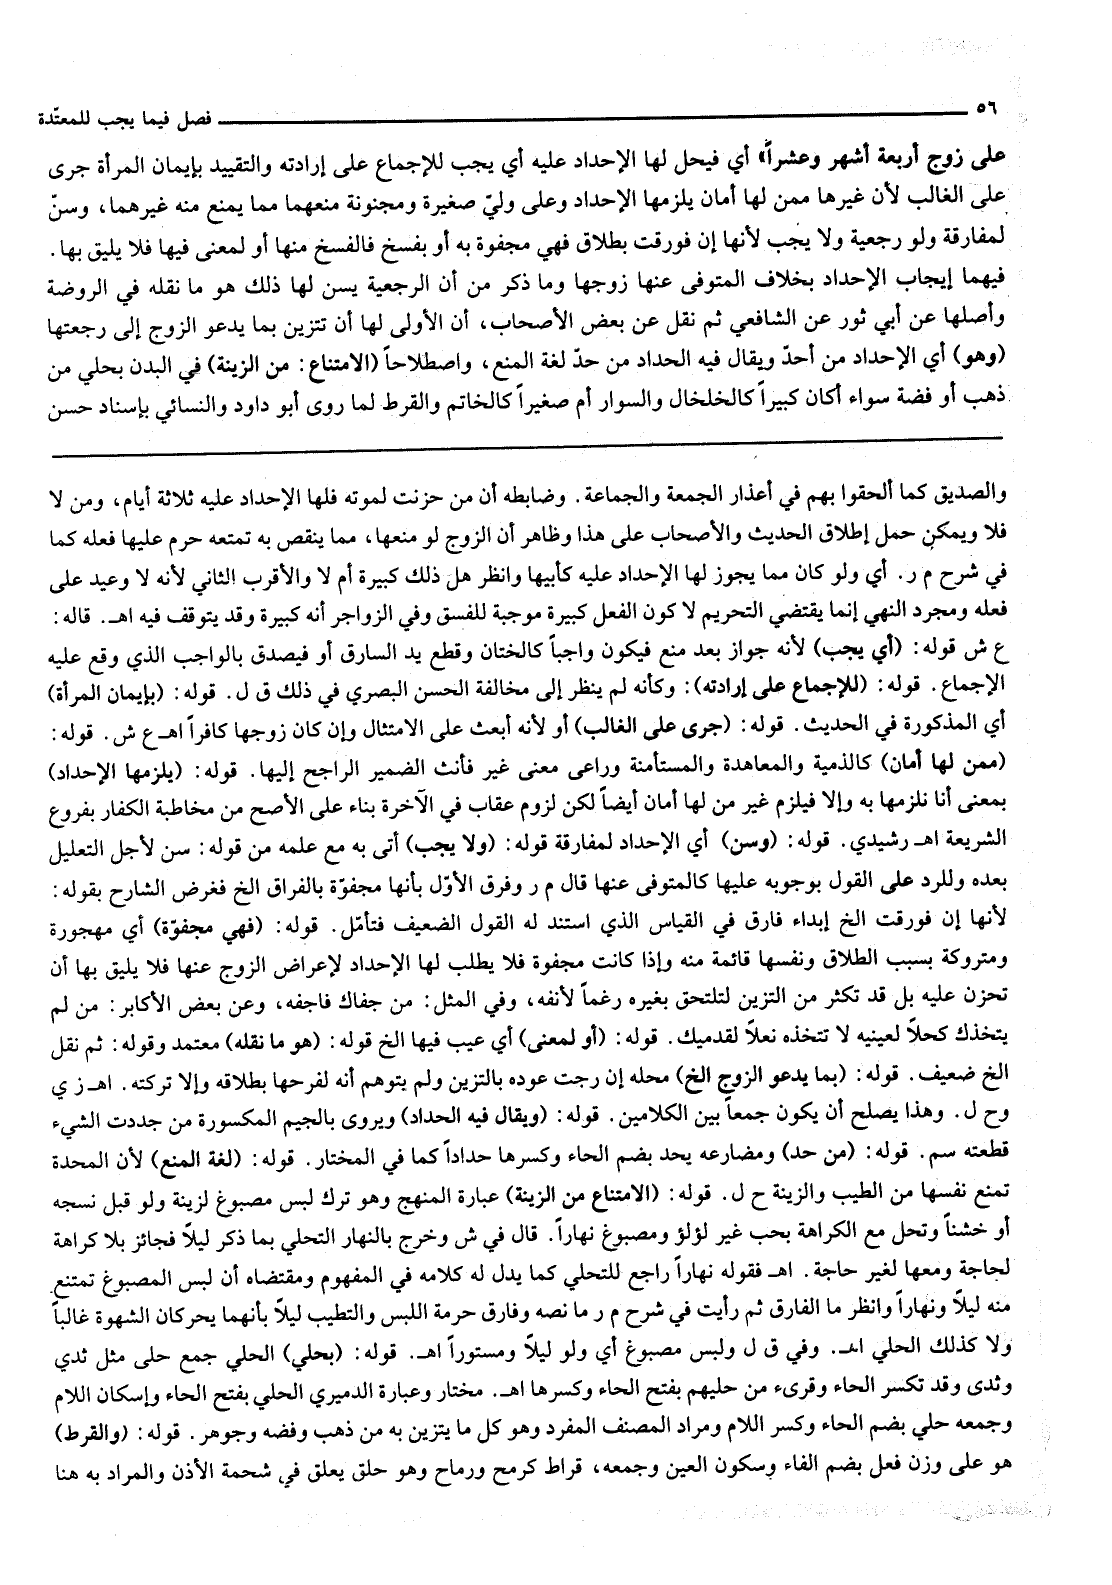 ٥٦ فصل فيما يجب للمعتدّة
على زوج أربعة أشهر وعشراً» أي فيحل لها الإحداد عليه أي يجب للإجماع على إرادته والتقييد بإيمان المرأة جرى
على الغالب لأن غيرها ممن لها أمان يلزمها الإحداد وعلى وليّ صغيرة ومجنونة منعهما مما يمنع منه غيرهما، وسنّ
لمفارقة ولو رجعية ولا يجب لأنها إن فورقت بطلاق فهي مجفوة به أو بفسخ فالفسخ منها أو لمعنى فيها فلا يليق بها.
فيهما إيجاب الإحداد بخلاف المتوفى عنها زوجها وما ذكر من أن الرجعية يسن لها ذلك هو ما نقله في الروضة
وأصلها عن أبي ثور عن الشافعي ثم نقل عن بعض الأصحاب، أن الأولى لها أن تتزين بما يدعو الزوج إلى رجعتها
(وهو) أي الإحداد من أحدّ ويقال فيه الحداد من حدّ لغة المنع، واصطلاحاً (الامتناع: من الزينة) في البدن بحلي من
ذهب أو فضة سواء أكان كبيراً كالخلخال والسوار أم صغيراً كالخاتم والقرط لما روى أبو داود والنسائي بإسناد حسن
والصديق كما ألحقوا بهم في أعذار الجمعة والجماعة. وضابطه أن من حزنت لموته فلها الإحداد عليه ثلاثة أيام، ومن لا
فلا ويمكن حمل إطلاق الحديث والأصحاب على هذا وظاهر أن الزوج لو منعها، مما ينقص به تمتعه حرم عليها فعله كما
في شرح م ر. أي ولو كان مما يجوز لها الإحداد عليه كأبيها وانظر هل ذلك كبيرة أم لا والأقرب الثاني لأنه لا وعيد على
فعله ومجرد النهي إنما يقتضي التحريم لا كون الفعل كبيرة موجبة للفسق وفي الزواجر أنه كبيرة وقد يتوقف فيه اهـ. قاله:
ع ش قوله: (أي يجب) لأنه جواز بعد منع فيكون واجباً كالختان وقطع يد السارق أو فيصدق بالواجب الذي وقع عليه
الإجماع. قوله: (للإجماع على إرادته): وكأنه لم ينظر إلى مخالفة الحسن البصري في ذلك ق ل. قوله: (بإيمان المرأة)
أي المذكورة في الحديث. قوله: (جرى على الغالب) أو لأنه أبعث على الامتثال وإن كان زوجها كافراً اهـ ع ش. قوله:
(ممن لها أمان) كالذمية والمعاهدة والمستأمنة وراعى معنى غير فأنث الضمير الراجح إليها. قوله: (يلزمها الإحداد)
بمعنى أنا نلزمها به وإلا فيلزم غير من لها أمان أيضاً لكن لزوم عقاب في الآخرة بناء على الأصح من مخاطبة الكفار بفروع
الشريعة اهـ رشيدي. قوله: (وسن) أي الإحداد لمفارقة قوله: (ولا يجب) أتى به مع علمه من قوله: سن لأجل التعليل
بعده وللرد على القول بوجوبه عليها كالمتوفى عنها قال م ر وفرق الأوّل بأنها مجفوّة بالفراق الخ فغرض الشارح بقوله:
لأنها إن فورقت الخ إبداء فارق في القياس الذي استند له القول الضعيف فتأمّل. قوله: (فهي مجفوّة) أي مهجورة
ومتروكة بسبب الطلاق ونفسها قائمة منه وإذا كانت مجفوة فلا يطلب لها الإحداد لإعراض الزوج عنها فلا يليق بها أن
تحزن عليه بل قد تكثر من التزين لتلتحق بغيره رغماً لأنفه، وفي المثل: من جفاك فاجفه، وعن بعض الأكابر: من لم
يتخذك كحلاً لعينيه لا تتخذه نعلاً لقدميك. قوله: (أو لمعنى) أي عيب فيها الخ قوله: (هو ما نقله) معتمد وقوله: ثم نقل
الخ ضعيف. قوله: (بما يدعو الزوج الخ) محله إن رجت عوده بالتزين ولم يتوهم أنه لفرحها بطلاقه وإلا تركته. اهـ ز ي
وح ل. وهذا يصلح أن يكون جمعاً بين الكلامين. قوله: (ويقال فيه الحداد) ويروى بالجيم المكسورة من جددت الشيء
قطعته سم. قوله: (من حد) ومضارعه يحد بضم الحاء وكسرها حداداً كما في المختار. قوله: (لغة المنع) لأن المحدة
تمنع نفسها من الطيب والزينة ح ل. قوله: (الامتناع من الزينة) عبارة المنهج وهو ترك لبس مصبوغ لزينة ولو قبل نسجه
أو خشناً وتحل مع الكراهة بحب غير لؤلؤ ومصبوغ نهاراً. قال في ش وخرج بالنهار التحلي بما ذكر ليلاً فجائز بلا كراهة
لحاجة ومعها لغير حاجة. اهـ فقوله نهاراً راجع للتحلي كما يدل له كلامه في المفهوم ومقتضاه أن لبس المصبوغ تمتنع
منه ليلاً ونهاراً وانظر ما الفارق ثم رأيت في شرح م ر ما نصه وفارق حرمة اللبس والتطيب ليلاً بأنهما يحركان الشهوة غالباً
ولا كذلك الحلي اهـ. وفي ق ل ولبس مصبوغ أي ولو ليلاً ومستوراً اهـ. قوله: (بحلي) الحلي جمع حلى مثل ثدي
وثدى وقد تكسر الحاء وقرىء من حليهم بفتح الحاء وكسرها اهـ. مختار وعبارة الدميري الحلي بفتح الحاء وإسكان اللام
وجمعه حلي بضم الحاء وكسر اللام ومراد المصنف المفرد وهو كل ما يتزين به من ذهب وفضه وجوهر. قوله: (والقرط)
هو على وزن فعل بضم الفاء وسكون العين وجمعه، قراط كرمح ورماح وهو حلق يعلق في شحمة الأذن والمراد به هنا